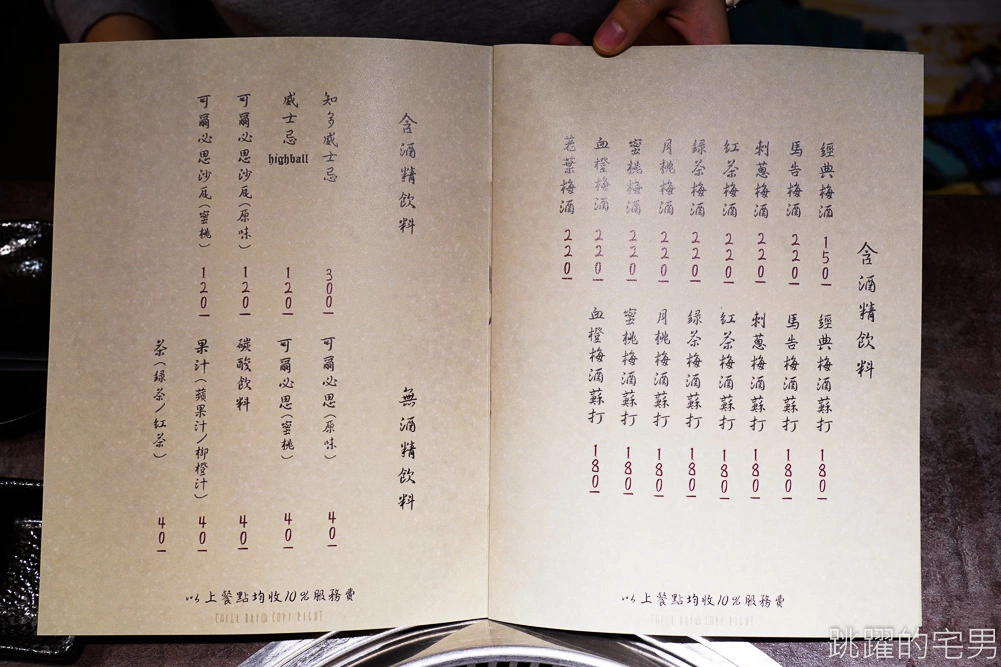 含酒精飲料
經典梅酒 150
馬告梅酒 220
刺蔥梅酒 220
紅茶梅酒 220
綠茶梅酒 220
月桃梅酒 220
蜜桃梅酒 220
血橙梅酒 220
荖葉梅酒 220
經典梅酒蘇打 180
馬告梅酒蘇打 180
刺蔥梅酒蘇打 180
紅茶梅酒蘇打 180
綠茶梅酒蘇打 180
月桃梅酒蘇打 180
蜜桃梅酒蘇打 180
血橙梅酒蘇打 180
以上餐點均收10%服務費
含酒精飲料
知多威士忌 300
威士忌highball 120
可爾必思沙瓦(原味) 120
可爾必思沙瓦(蜜桃) 120
無酒精飲料
可爾必思(原味) 40
可爾必思(蜜桃) 40
碳酸飲料 40
果汁(蘋果汁/柳橙汁) 40
茶(綠茶/紅茶) 40
以上餐點均收10%服務費
跳躍的宅男